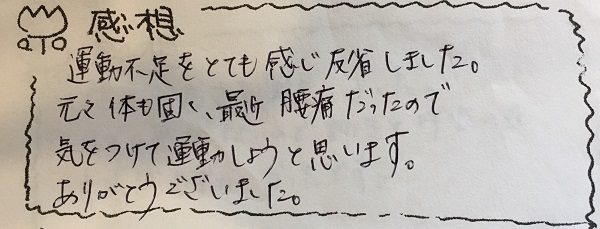 感想
運動不足をとても感じ反省しました。
元々体も固く、最近腰痛だったので
気をつけて運動しようと思います。
ありがとうございました。